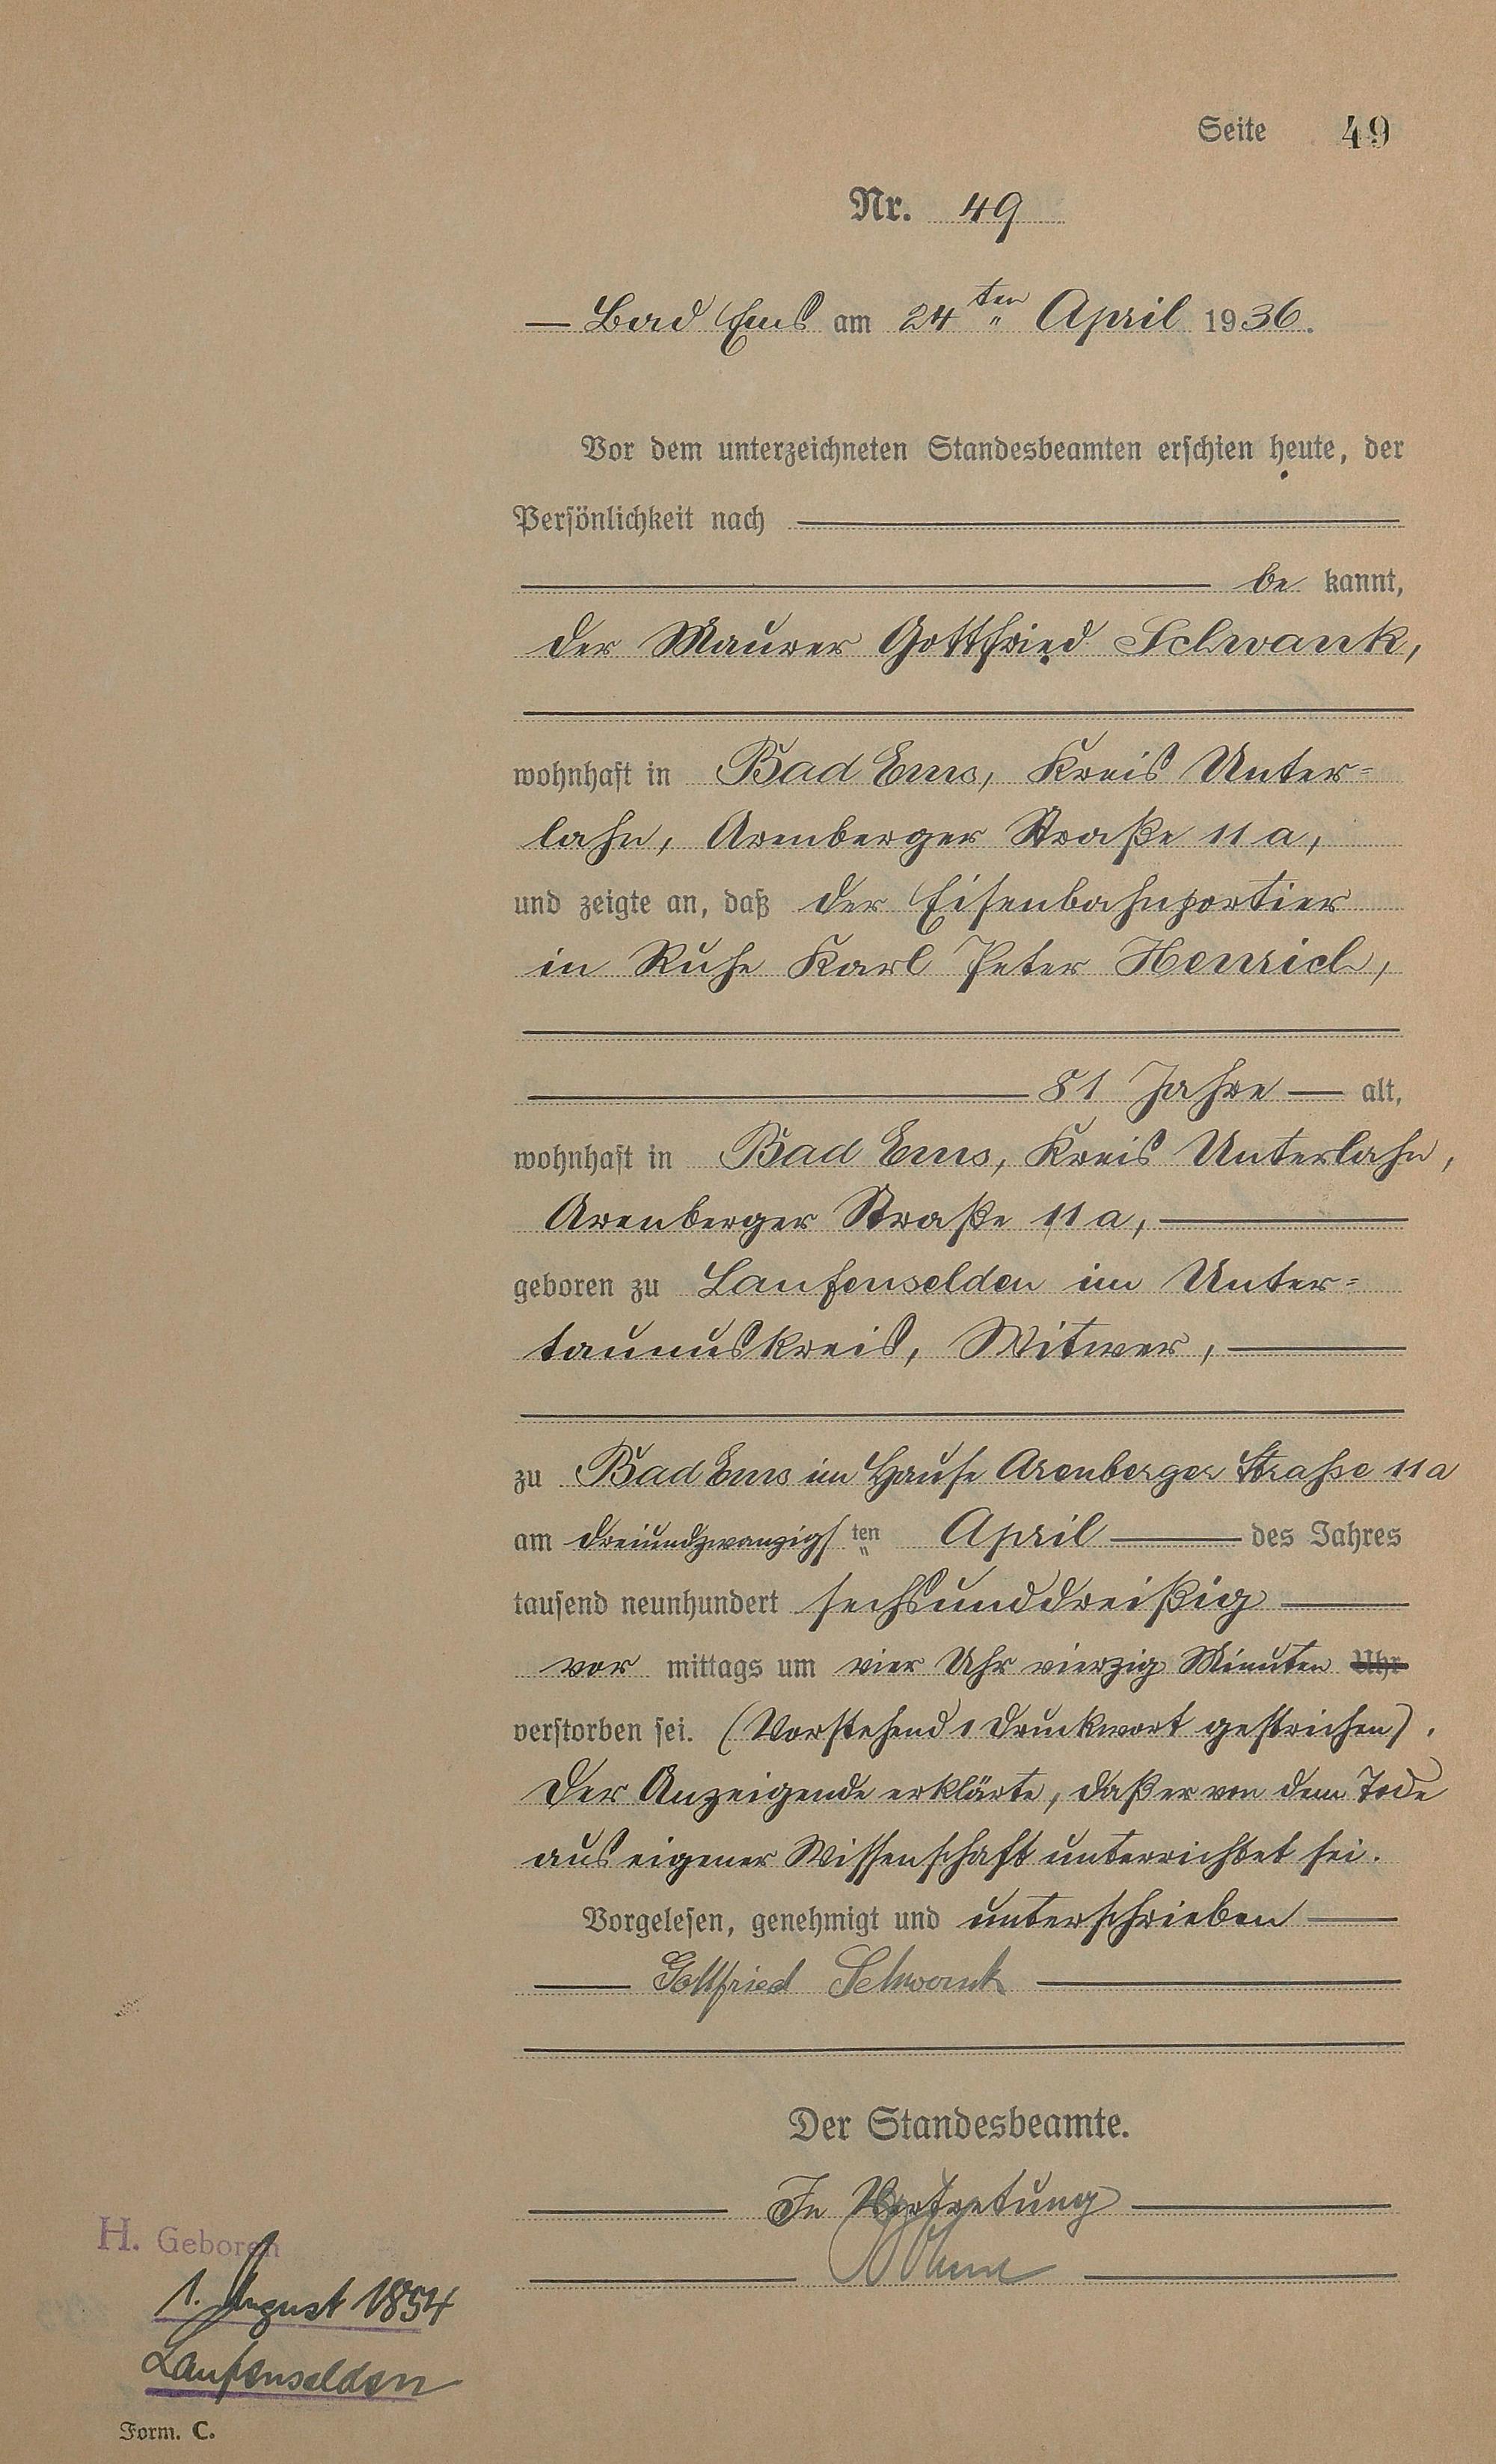 Seite 49
Nr. 49
— Bad Ems am 24ten April 1936.
Vor dem unterzeichneten Standesbeamten erschien heute, der
Persönlichkeit nach
be kannt,
der Maurer Gottfried Schwank,
wohnhaft in Bad Ems, Kreis Unter=
lahn, Arenberger Straße 11 a,
und zeigte an, daß der Eisenbahnportier
in Ruhe Karl Peter Henrich,
81 Jahre — alt,
wohnhaft in Bad Ems, Kreis Unterlahn,
Arenberger Straße 11 a,
geboren zu Laufenselden im Unter=
taunuskreis, Witwer,
zu Bad Ems im Hause Arenberger Straße 11 a
am dreiundzwanzigsten April — des Jahres
tausend neunhundert sechsunddreißig
vor mittags um vier Uhr vierzig Minuten Uhr
verstorben sei. (Vorstehend 1 Druckwort gestrichen).
Der Anzeigende erklärte, daß er von dem Tode
aus eigener Wissenschaft unterrichtet sei.
Vorgelesen, genehmigt und unterschrieben
Gottfried Schwank
Der Standesbeamte.
In Vertretung
H. Geboren
1. August 1854
Laufenselden
Form. C.